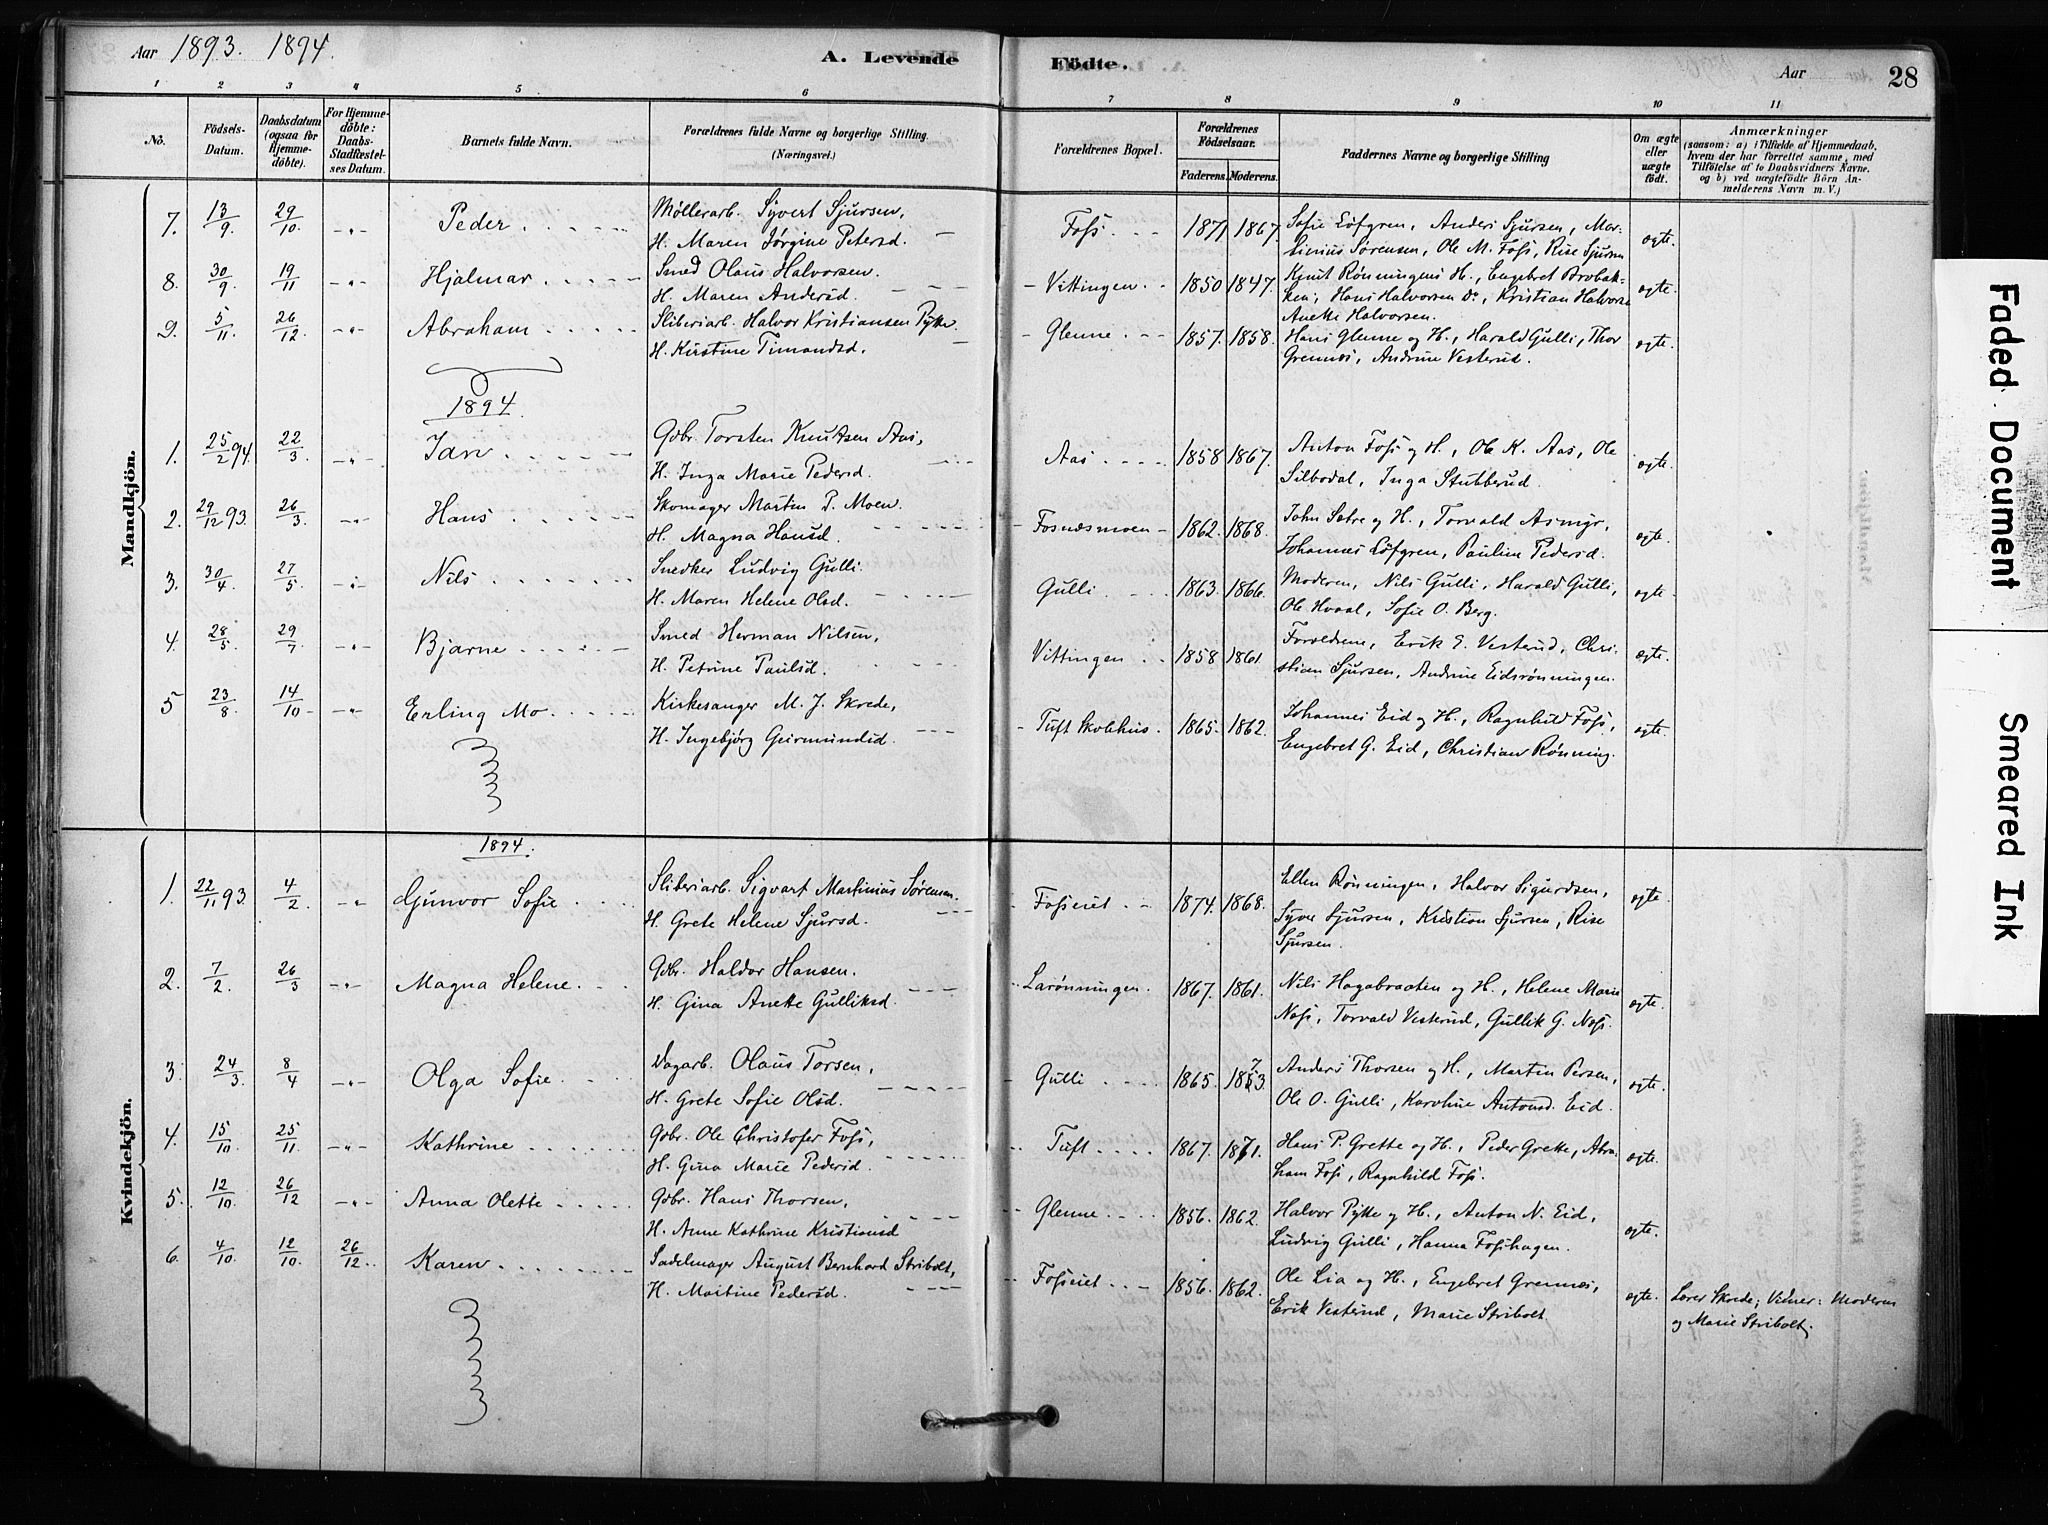 Aar 1893. 1894.
A. Levende
Födte.
Aar
28
1 2 3 4 5 6 7 8 9 10 11
No.
Födsels-Datum.
Daabsdatum (ogsaa for Hjemmedöbte).
For Hjemmedöbte: Daabs-Stadfestelses Datum.
Barnets fulde Navn.
Forældrenes fulde Navne og borgerlige Stilling. (Næringsvei.)
Forældrenes Bopæl.
Forældrenes Födselsaar. Faderens. Moderens.
Faddernes Navne og borgerlige Stilling
Om ægte eller uægte födt.
Anmærkninger (saasom: a) i Tilfælde af Hjemmedaab, hvem der har forrettet samme, med Tilföielse af to Daabsvidners Navne. og b) ved uægtefödte Börn Anmelderens Navn m. V.)
Mandkjön.
7. 13/9 29/10 -"- Peder Møllerarb. Syvert Sjursen, Foss 1871 1867. Sofie Löfgren, Anders Sjursen, Mar-
H. Maren Jørgine Petersd. sinius Sørensen, Ole M. Foss, Rise Sjursen ægte.
8. 30/9 19/11 -"- Hjalmar Smed Olaus Halvorsen. Vittingen 1850 1847. Knut Rønningens H., Engebret Brobak-
H. Maren Andersd. ken, Hans Halvorsen do, Kristian Halvorsen ægte.
Anette Halvorsen.
9. 5/11 26/12 -"- Abraham Sliberiarb. Halvor Kristiansen Pytte. Glenne 1857. 1858. Hans Glenne og H., Harald Gulli, Thor
H. Kirstine Timandsd. Grennes, Andrine Vesterud. ægte.
1894
1. 25/2 94. 22/3 -"- Jan Gbr. Torsten Knutsen Aas, Aas 1858 1867. Anton Foss og H., Ole K. Aas, Ole
H. Inga Marie Pedersd. Silbodal, Inga Stubberud. ægte.
2. 29/12 93. 26/3 -"- Hans Skomager Martin P. Moen. Fosnæsmoen 1862. 1868. John Sætre og H., Torvald Asmyr,
H. Magna Hansd. Johannes Löfgren, Pauline Pedersd. ægte.
3. 30/4 27/5 -"- Nils Snedker Ludvig Gulli. Gulli 1863. 1866. Moderen, Nils Gulli, Harald Gulli,
H. Maren Helene Olsd. Ole Hvaal, Sofie O. Berg. ægte.
4. 28/5 29/7 -"- Bjarne Smed Herman Nilsen, Vittingen 1858 1861. Foreldrene, Erik E. Vesterud, Chri-
H. Petrine Paulsd. stian Sjursen, Andrine Eidsrønningen. ægte.
5 23/8. 14/10 -"- Erling Mo Kirkesanger M. J. Skrede, Tuft Skolehus. 1865. 1862. Johannes Eid og H., Ragnhild Foss,
H. Ingebjörg Geirmundsd. Engebret G. Eid, Christian Rønning. ægte.
Kvindekjön.
1894.
1. 22/11 93. 4/2 -"- Gunvor Sofie Sliberiarb. Sigvart Martinius Sørensen. Fosseiet 1874. 1868. Ellen Rønningen, Halvor Sigurdsen,
H. Grete Helene Sjursd. Syver Sjursen, Kristian Sjursen, Rise ægte.
Sjursen.
2. 7/2 26/3 -"- Magna Helene Gbr. Haldor Hansen. Larønningen. 1867. 1861. Nils Hagabraaten og H., Helene Marie
H. Gina Anette Gulliksd. Næss, Torvald Vesterud, Gullik G. Næss. ægte.
3. 24/3 8/4 -"- Olga Sofie Dagarb. Olaus Torsen, Gulli 1865. 1873. Anders Thorsen og H., Martin Persen,
H. Grete Sofie Olsd. Ole O. Gulli, Karoline Antonsd. Eid. ægte.
4. 15/10 25/11 -"- Kathrine Gbr. Ole Christofer Foss, Tuft 1867. 1871. Hans P. Grette og H., Peder Grette, Abra-
H. Gina Marie Pedersd. ham Foss, Ragnhild Foss. ægte.
5. 12/10 26/12 -"- Anna Olette Gbr. Hans Thorsen, Glenne 1856. 1862. Halvor Pytte og H., Anton N. Eid,
H. Anne Kathrine Kristiansd Ludvig Gulli, Hanna Fosshagen. ægte.
6. 4/10 12/10 26/12 Karen Sadelmager August Bernhard Stribolt, Fosseiet 1856. 1862. Ole Lia og H., Engebret Grennes,
H. Martine Pedersd. Erik Vesterud, Marie Stribolt ægte. Lærer Skrede; Vidner: Moderen
og Marie Stribolt.
Faded Document
Smeared Ink